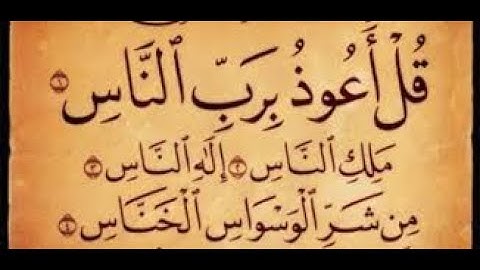 قُلْ أَعُوذُ بِرَبِّ ٱلنَّاسِ ١
مَلِكِ ٱلنَّاسِ ٢ إِلَٰهِ ٱلنَّاسِ ٣
مِن شَرِّ ٱلْوَسْوَاسِ ٱلْخَنَّاسِ ٤